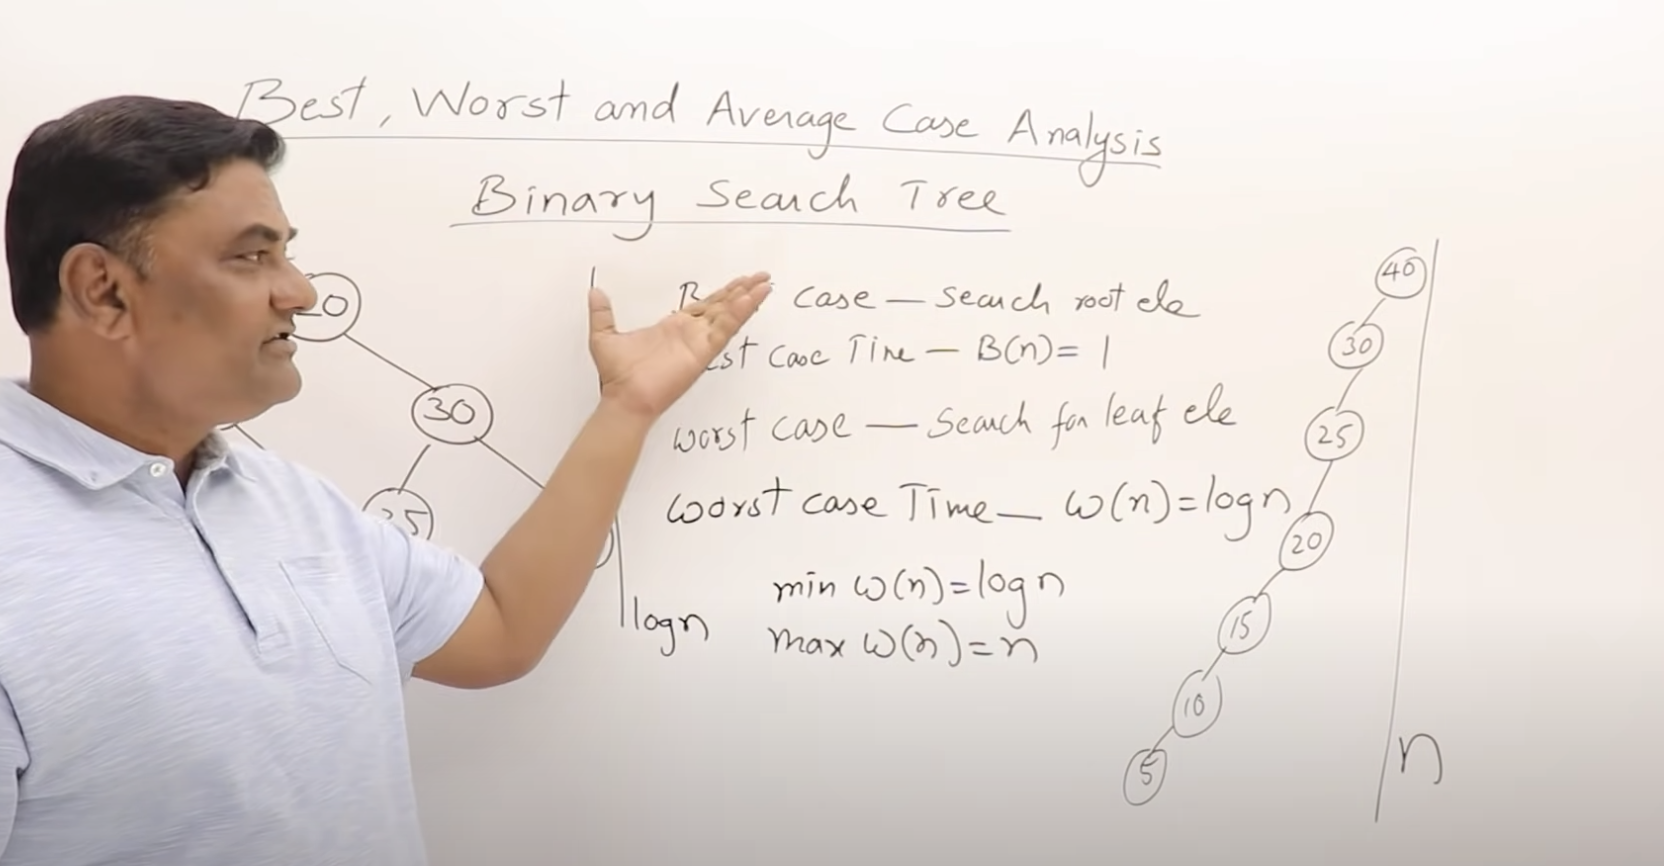 Best, Worst and Average Case Analysis
Binary Search Tree
case — search root ele
case Time — B(n)= 1
worst case — search for leaf ele
worst case Time — w(n)=logn
min w(n)=logn
max w(n)=n
logn
30
40
30
25
20
15
10
5
n